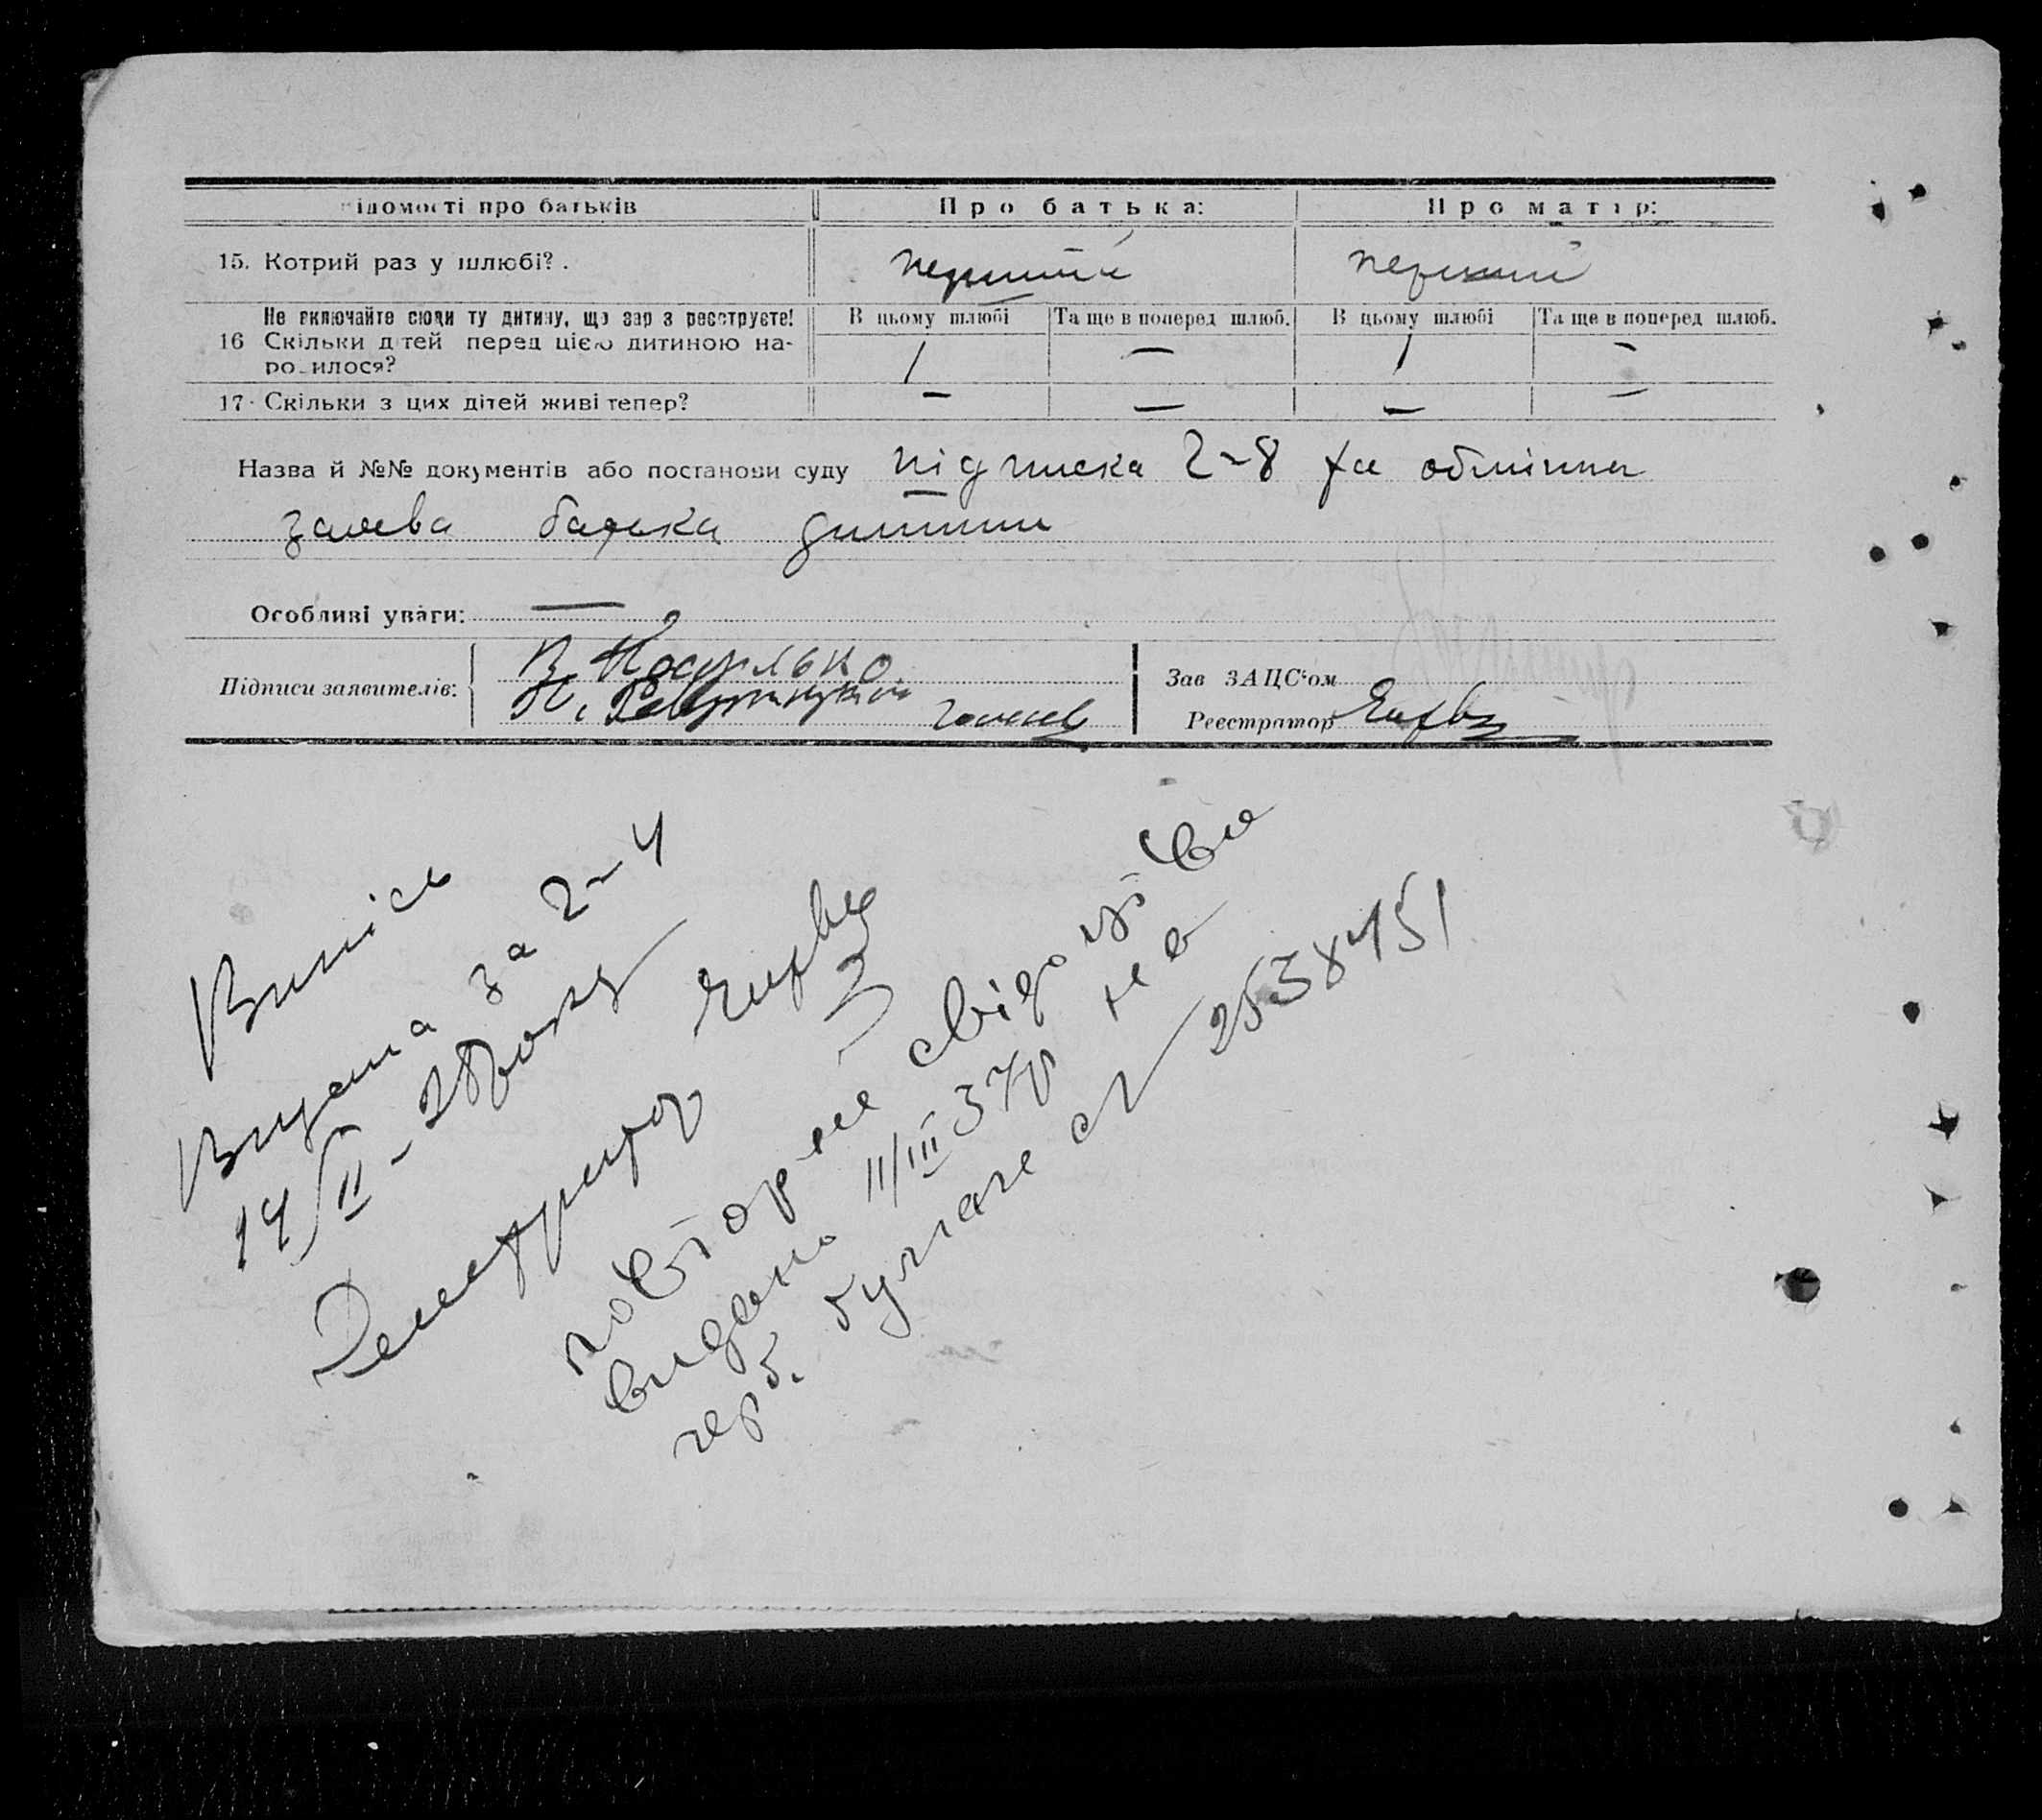 ідомості про батьків
Про батька:
Про матір:
15. Котрий раз у шлюбі?.
перший
перший
Не включайте сюди ту дитину, що зараз реєструєте!
В цьому шлюбі
Та ще в поперед шлюб.
В цьому шлюбі
Та ще в поперед шлюб.
16 Скільки дітей перед цією дитиною на-
родилося?
/
—
/
—
17. Скільки з цих дітей живі тепер?
—
—
—
—
Назва й №№ документів або постанови суду підписка 2-8
заява батька дитини
Особливі уваги: —
Підписи заявителів:
В.
Н.
Зав ЗАЦС'ом
Реєстратор
Випісь
Видана за 2-4
14/II-28 року
Реєстратор
повторне свідоцтво
видано 11/III 37р на
герб. бумаге № 2538451